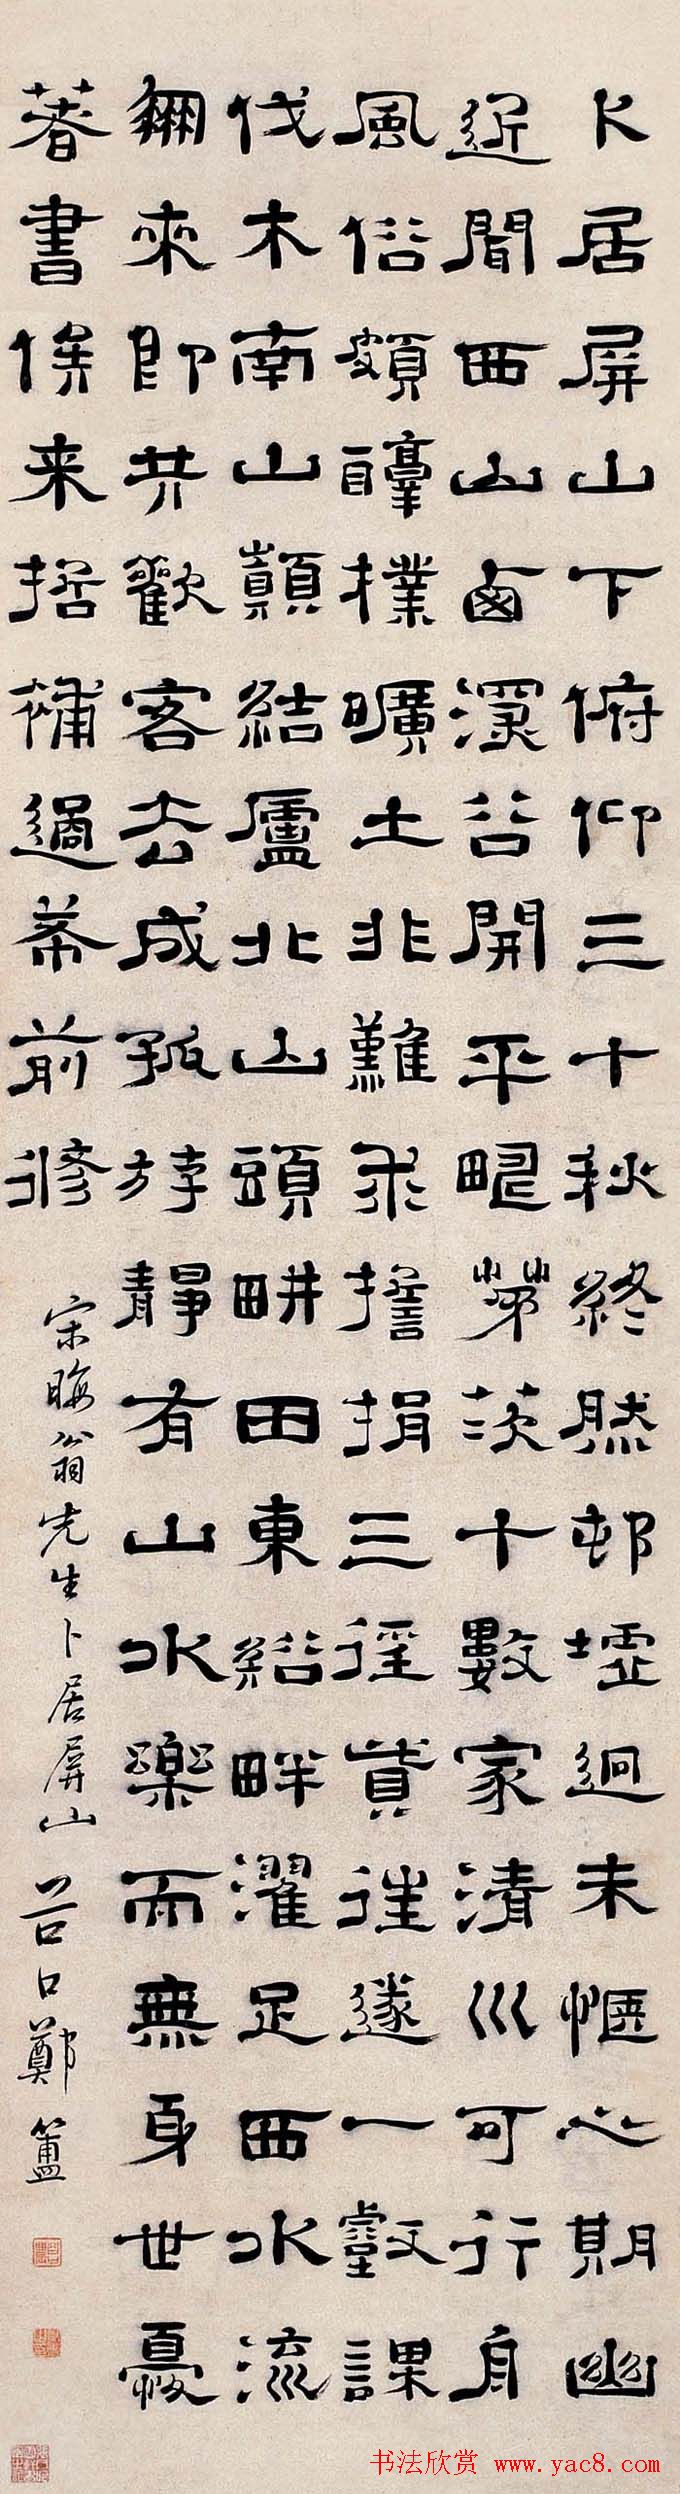 卜居屏山下俯仰三十秋終然邨墟迥未愜心期幽
近聞西山卥深谷開平疇茅茨十數家清川可行舟
風俗頗醇樸曠土非難求擔捐三徑貲往遂一壑謀
伐木南山巔結廬北山頭畊田東谿畔濯足西水流
朋來即共歡客去成孤游靜有山水樂而無身世憂
著書俟来哲補過希前修
宋晦翁先生卜居屏山 谷口鄭簠
书法欣赏 www.yac8.com